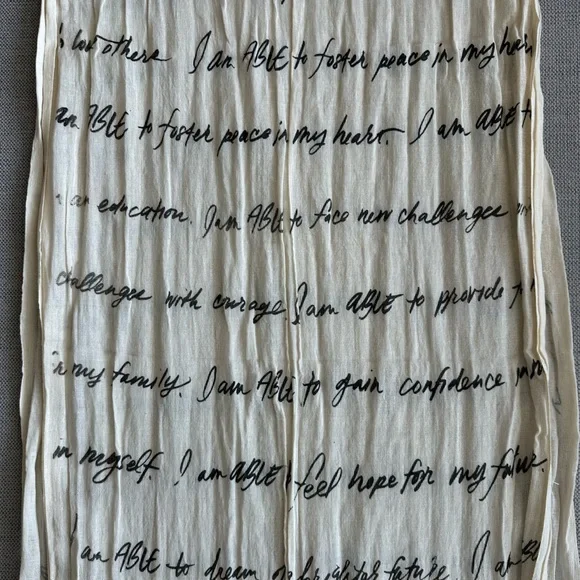 others I am ABLE to foster peace in my hear
am ABLE to foster peace in my heart. I am ABLE t
an education. I am ABLE to face new challenges
challenges with courage I am ABLE to provide
my family. I am ABLE to gain confidence
in myself. I am ABLE feel hope for my futur.
I am ABLE to dream of brighter future I am